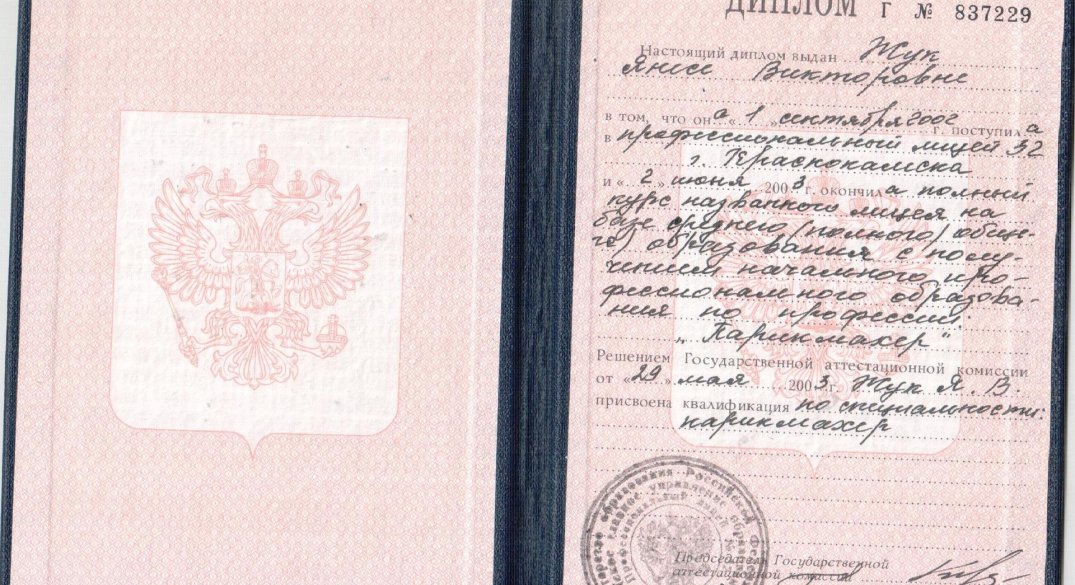 ДИПЛОМ Г № 837229
Настоящий диплом выдан Жук
Янесе Викторовне
в том, что он а « 1 » сентября 2002 г. поступил а
в профессиональный лицей 32
г. Краснокамска
и « 2 » июня 2003 г. окончил а полный
курс названного лицея на
базе среднего (полного) обще-
го) образования с полу-
чением начального про-
фессионального образова-
ния по профессии:
„Парикмахер"
Решением Государственной аттестационной комиссии
от « 29 » мая 2003 г. Жук Я. В.
присвоена квалификация по специальности:
парикмахер
образования Российской
главное управление образо
Профессиональный лицей №
Председатель Государственной
аттестационной комиссии